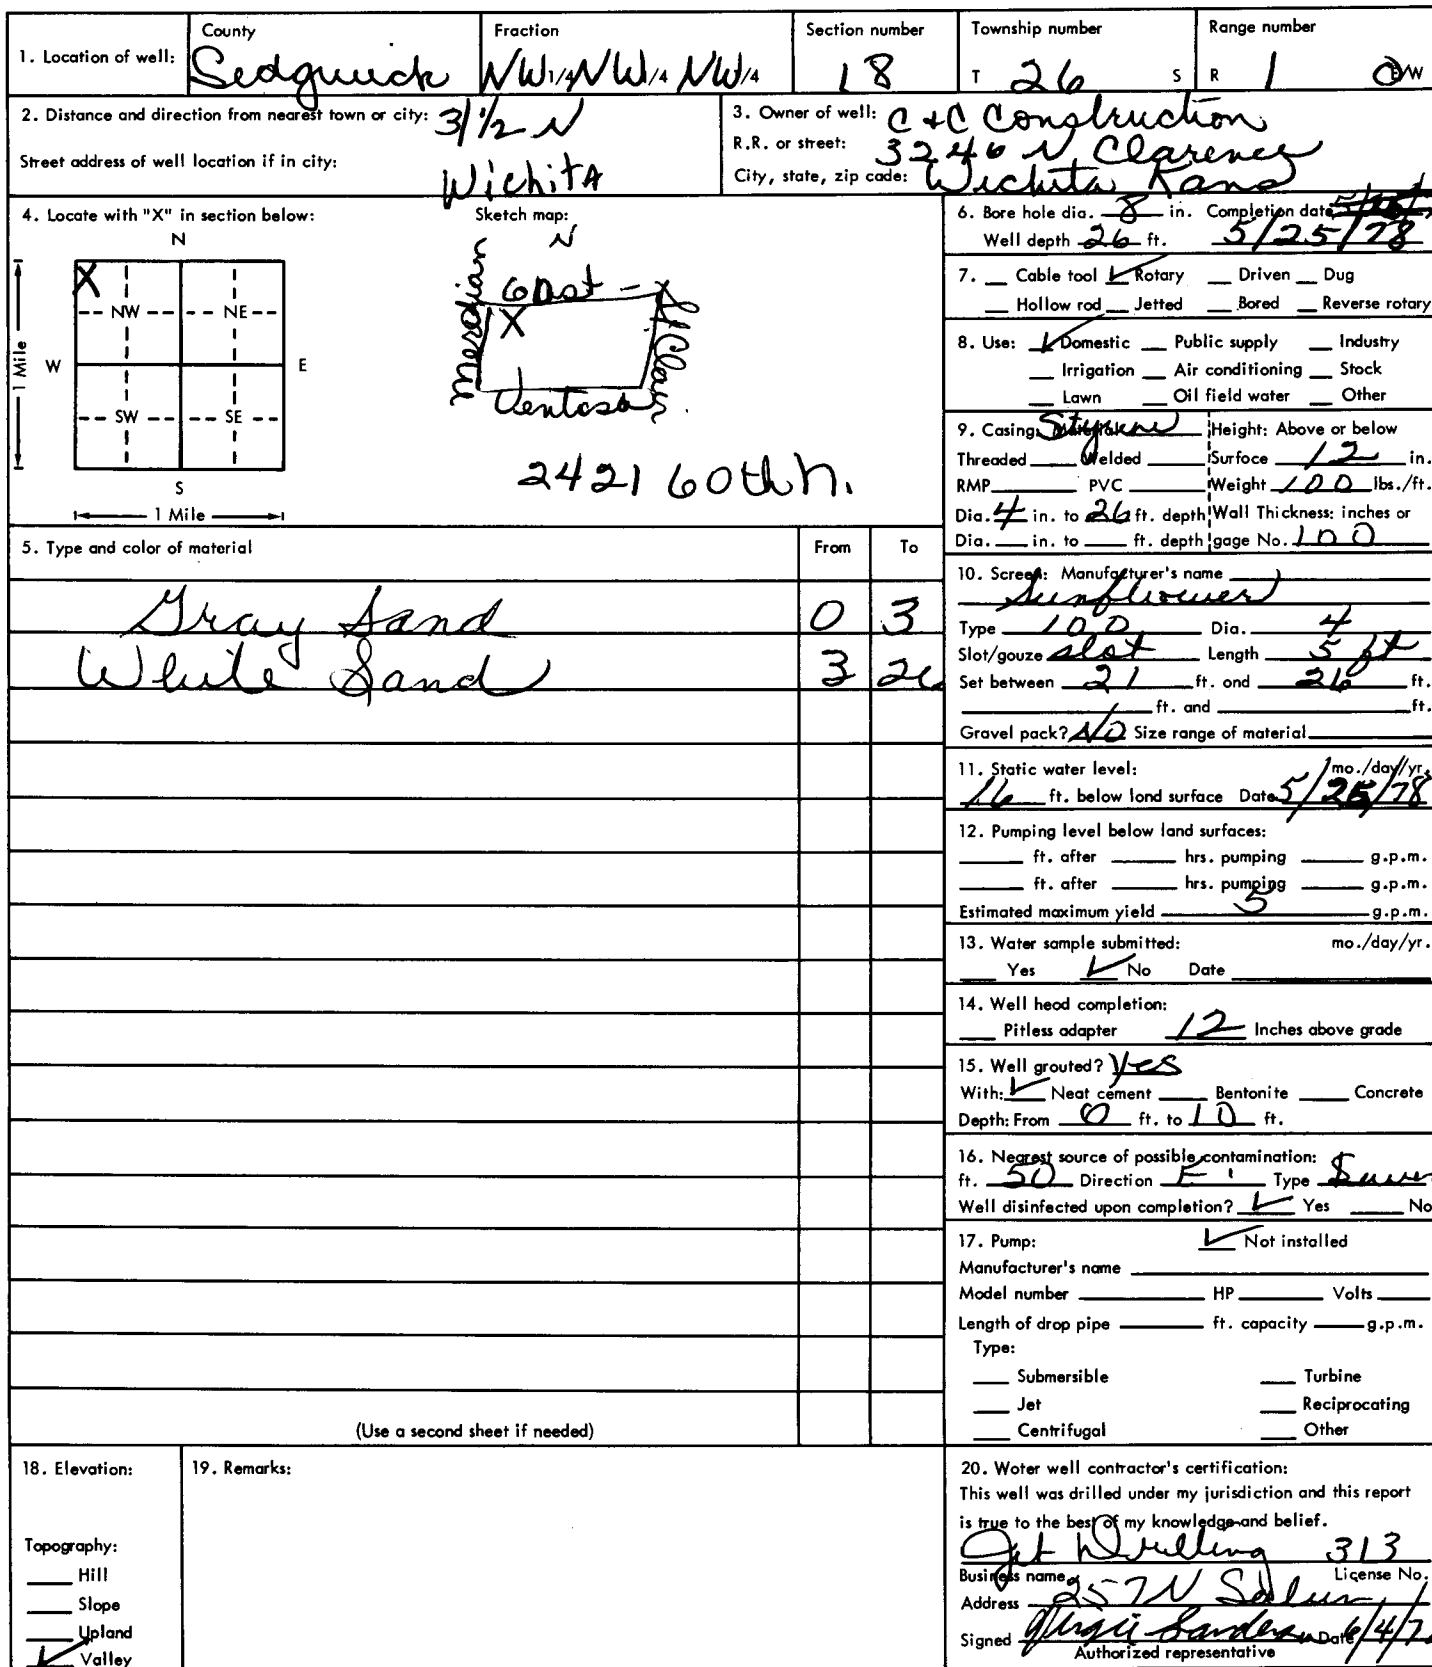 1. Location of well: County Sedgwick Fraction NW 1/4 NW 1/4 NW 1/4 Section number 18 Township number T 26 S Range number R 1 E/W
2. Distance and direction from nearest town or city: 3 1/2 N
Street address of well location if in city: Wichita
3. Owner of well: C & C Construction
R.R. or street: 3246 N Clarence
City, state, zip code: Wichita Kans
4. Locate with "X" in section below:
N
X
NW NE
W E
SW SE
S
1 Mile
1 Mile
Sketch map:
N
60th
Meridian X St Clair
Ventosa
2421 60th N.
5. Type and color of material From To
Gray Sand 0 3
White Sand 3 26
(Use a second sheet if needed)
6. Bore hole dia. 8 in. Completion date
Well depth 26 ft. 5/25/78
7. __ Cable tool ✓ Rotary __ Driven __ Dug
__ Hollow rod __ Jetted __ Bored __ Reverse rotary
8. Use: ✓ Domestic __ Public supply __ Industry
__ Irrigation __ Air conditioning __ Stock
__ Lawn __ Oil field water __ Other
9. Casing: Material Styrene Height: Above or below
Threaded __ Welded __ Surface 12 in.
RMP __ PVC __ Weight 100 lbs./ft.
Dia. 4 in. to 26 ft. depth Wall Thickness: inches or
Dia. __ in. to __ ft. depth gage No. 100
10. Screen: Manufacturer's name
Sunflower
Type 100 Dia. 4
Slot/gauze slot Length 5 ft
Set between 21 ft. and 26 ft.
__ ft. and __ ft.
Gravel pack? NO Size range of material
11. Static water level: mo./day/yr.
16 ft. below land surface Date 5/25/78
12. Pumping level below land surfaces:
__ ft. after __ hrs. pumping __ g.p.m.
__ ft. after __ hrs. pumping __ g.p.m.
Estimated maximum yield 5 g.p.m.
13. Water sample submitted: mo./day/yr.
__ Yes ✓ No Date
14. Well head completion:
__ Pitless adapter 12 Inches above grade
15. Well grouted? Yes
With: ✓ Neat cement __ Bentonite __ Concrete
Depth: From 0 ft. to 10 ft.
16. Nearest source of possible contamination:
ft. 50 Direction E Type Sewer
Well disinfected upon completion? ✓ Yes __ No
17. Pump: ✓ Not installed
Manufacturer's name
Model number __ HP __ Volts
Length of drop pipe __ ft. capacity __ g.p.m.
Type:
__ Submersible __ Turbine
__ Jet __ Reciprocating
__ Centrifugal __ Other
18. Elevation:
Topography:
__ Hill
__ Slope
__ Upland
✓ Valley
19. Remarks:
20. Water well contractor's certification:
This well was drilled under my jurisdiction and this report
is true to the best of my knowledge and belief.
Jet Drilling 313
Business name License No.
Address 257 N
Signed Sanders Date 6/4/7
Authorized representative